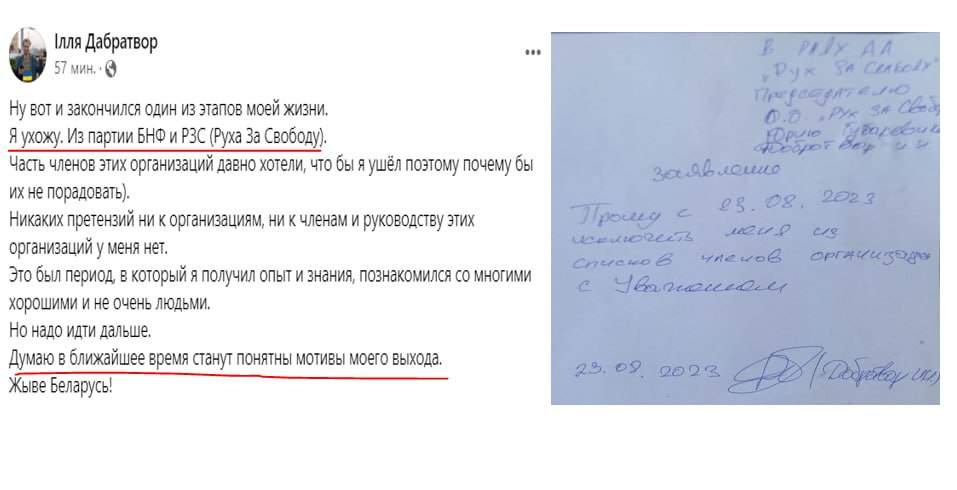 Ілля Дабратвор
57 мин.
Ну вот и закончился один из этапов моей жизни.
Я ухожу. Из партии БНФ и РЗС (Руха За Свободу).
Часть членов этих организаций давно хотели, что бы я ушёл поэтому почему бы
их не порадовать).
Никаких претензий ни к организациям, ни к членам и руководству этих
организаций у меня нет.
Это был период, в который я получил опыт и знания, познакомился со многими
хорошими и не очень людьми.
Но надо идти дальше.
Думаю в ближайшее время станут понятны мотивы моего выхода.
Жыве Беларусь!
В
"Рух За Свабоду"
Председателю
О.О "Рух За Свабо
Юрию Губаревич
Добротвор И И
Заявление
Прошу с 23.08.2023
исключить меня из
списков членов организации
с Уважением
23.08.2023 (Добротвор ИИ)